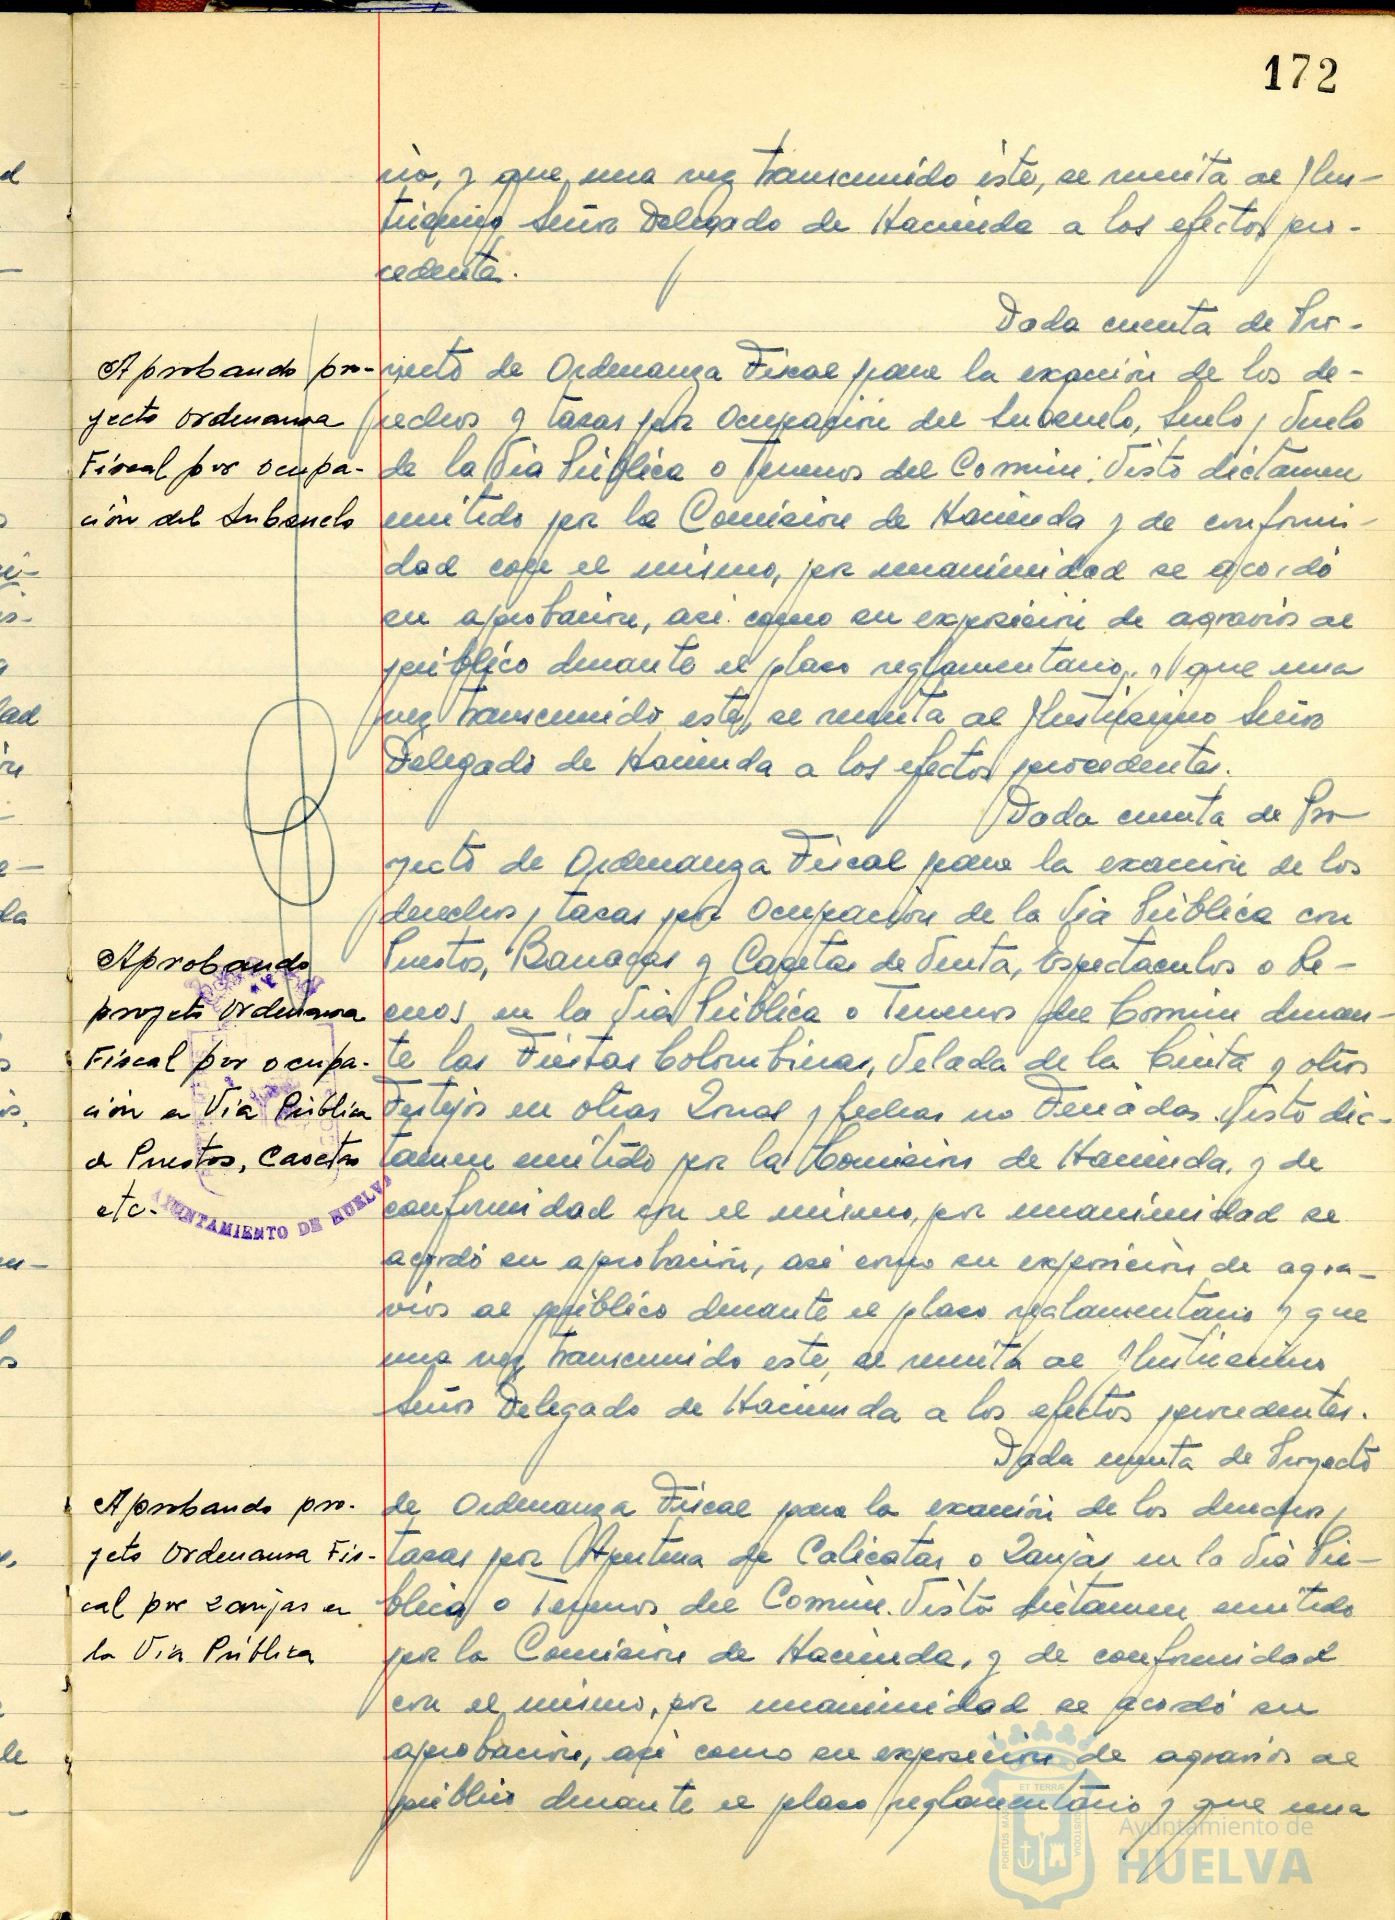 172
rio, y que una vez transcurrido éste, se remita al Ilus-
trísimo Señor Delegado de Hacienda a los efectos pro-
cedentes.
Dada cuenta de Pro-
Aprobando pro-
yecto Ordenanza
Fiscal por ocupa-
ción del Subsuelo
yecto de Ordenanza Fiscal para la exacción de los de-
rechos y tasas por Ocupación del Subsuelo, Suelo y Vuelo
de la Vía Pública o Terrenos del Común. Visto dictamen
emitido por la Comisión de Hacienda y de conformi-
dad con el mismo, por unanimidad se acordó
su aprobación, así como su exposición de agravios al
público durante el plazo reglamentario, y que una
vez transcurrido este, se remita al Ilustrísimo Señor
Delegado de Hacienda a los efectos procedentes.
Dada cuenta de Pro-
yecto de Ordenanza Fiscal para la exacción de los
derechos y tasas por Ocupación de la Vía Pública con
Aprobando
proyecto Ordenanza
Fiscal por ocupa-
ción en Vía Pública
de Puestos, Casetas
etc.
Puestos, Barracas y Casetas de Venta, Espectáculos o Re-
creos en la Vía Pública o Terrenos del Común duran-
te las Fiestas Colombinas, Velada de la Cinta y otros
Festejos en otras Zonas y fechas no Feriadas. Visto dic-
tamen emitido por la Comisión de Hacienda, y de
conformidad con el mismo, por unanimidad se
acordó su aprobación, así como su exposición de agra-
vios al público durante el plazo reglamentario y que
una vez transcurrido este, se remita al Ilustrísimo
Señor Delegado de Hacienda a los efectos procedentes.
AYUNTAMIENTO DE HUELVA
Dada cuenta de Proyecto
Aprobando pro-
yecto Ordenanza Fis-
cal por zanjas en
la Vía Pública
de Ordenanza Fiscal para la exacción de los derechos y
tasas por Apertura de Calicatas o Zanjas en la Vía Pú-
blica o Terrenos del Común. Visto dictamen emitido
por la Comisión de Hacienda, y de conformidad
con el mismo, por unanimidad se acordó su
aprobación, así como su exposición de agravios al
público durante el plazo reglamentario y que una
Ayuntamiento de
HUELVA